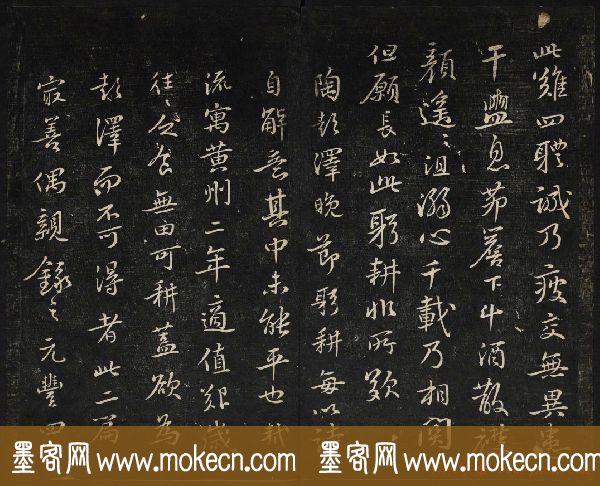 此難四體誠乃疲交無異患
干盥息茆簷下斗酒散襟
顏遙〻沮溺心千載乃相關
但願長如此躬耕非所歎
陶彭澤晚節躬耕每以詩
自解意其中未能平也軾
流寓黄州二年適值艱歲
往〻乏食無田可耕蓋欲為
彭澤而不可得者此二篇
冣善偶親錄之元豐四
墨客网 www.mokecn.com 墨客网 www.mokecn.com